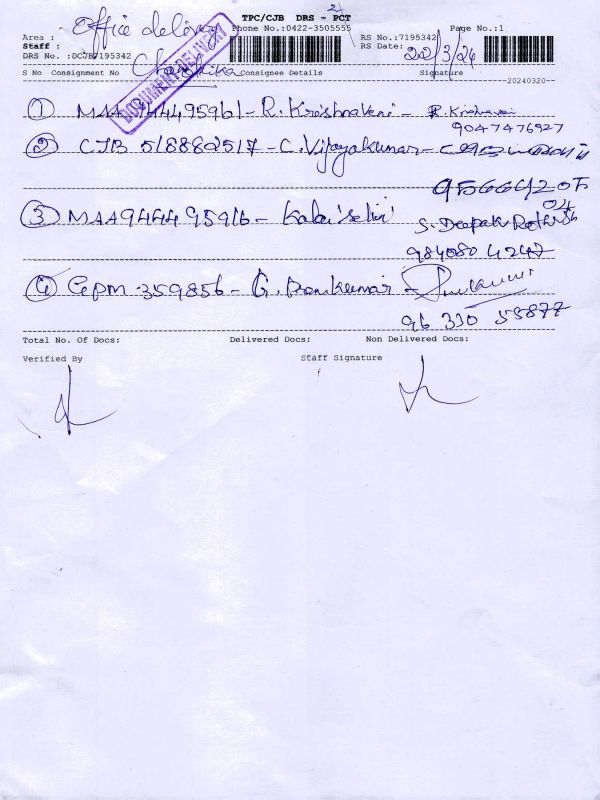 TPC/CJB DRS - PCT
Office delivery
Phone No.:0422-3505555
Page No.:1
Area :
RS No.:7195342
Staff :
RS Date: 22/3/24
DRS No. :DCJB7195342
DOCUMENT DELIVERY
S No Consignment No Consignee Details Signature
20240320
① MAA944495961 - R. Krishnaveni - R. Krishnaveni
9047476927
② CJB 518882517 - C. Vijayakumar -
③ MAA944495916 - Kalai selvi S. Deepak
984080 4247
④ CPM 359856 - G. Ramkumar -
96 330 55877
Total No. Of Docs: Delivered Docs: Non Delivered Docs:
Verified By Staff Signature